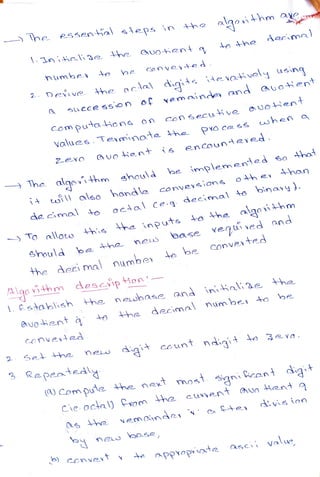 → The essential steps in the algorithm are
1. Initialize the quotient q to the decimal
number to be converted.
2. Derive the octal digits iteratively using
a succession of remainder and quotient
computations on consecutive quotient
values. Terminate the process when a
zero quotient is encountered.
→ The algorithm should be implemented so that
it will also handle conversions other than
decimal to octal (e.g. decimal to binary).
→ To allow this the inputs to the algorithm
should be the new base required and
the decimal number to be converted
Algorithm description:-
1. Establish the newbase and initialize the
quotient q to the decimal number to be
converted
2. Set the new digit count ndigit to zero.
3 Repeatedly
(a) Compute the next most significant digit
(ie. octal) from the current quotient q
as the remainder 'r' after division
by new base,
(b) convert r to appropriate ascii value,